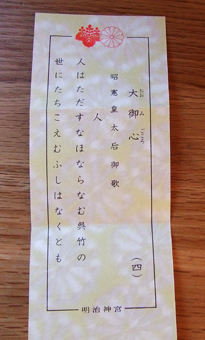 大御心
おおみごころ
(四)
昭憲皇太后御歌
人
人はただすなほならなむ呉竹の
世にたちこえむふしはなくとも
明治神宮